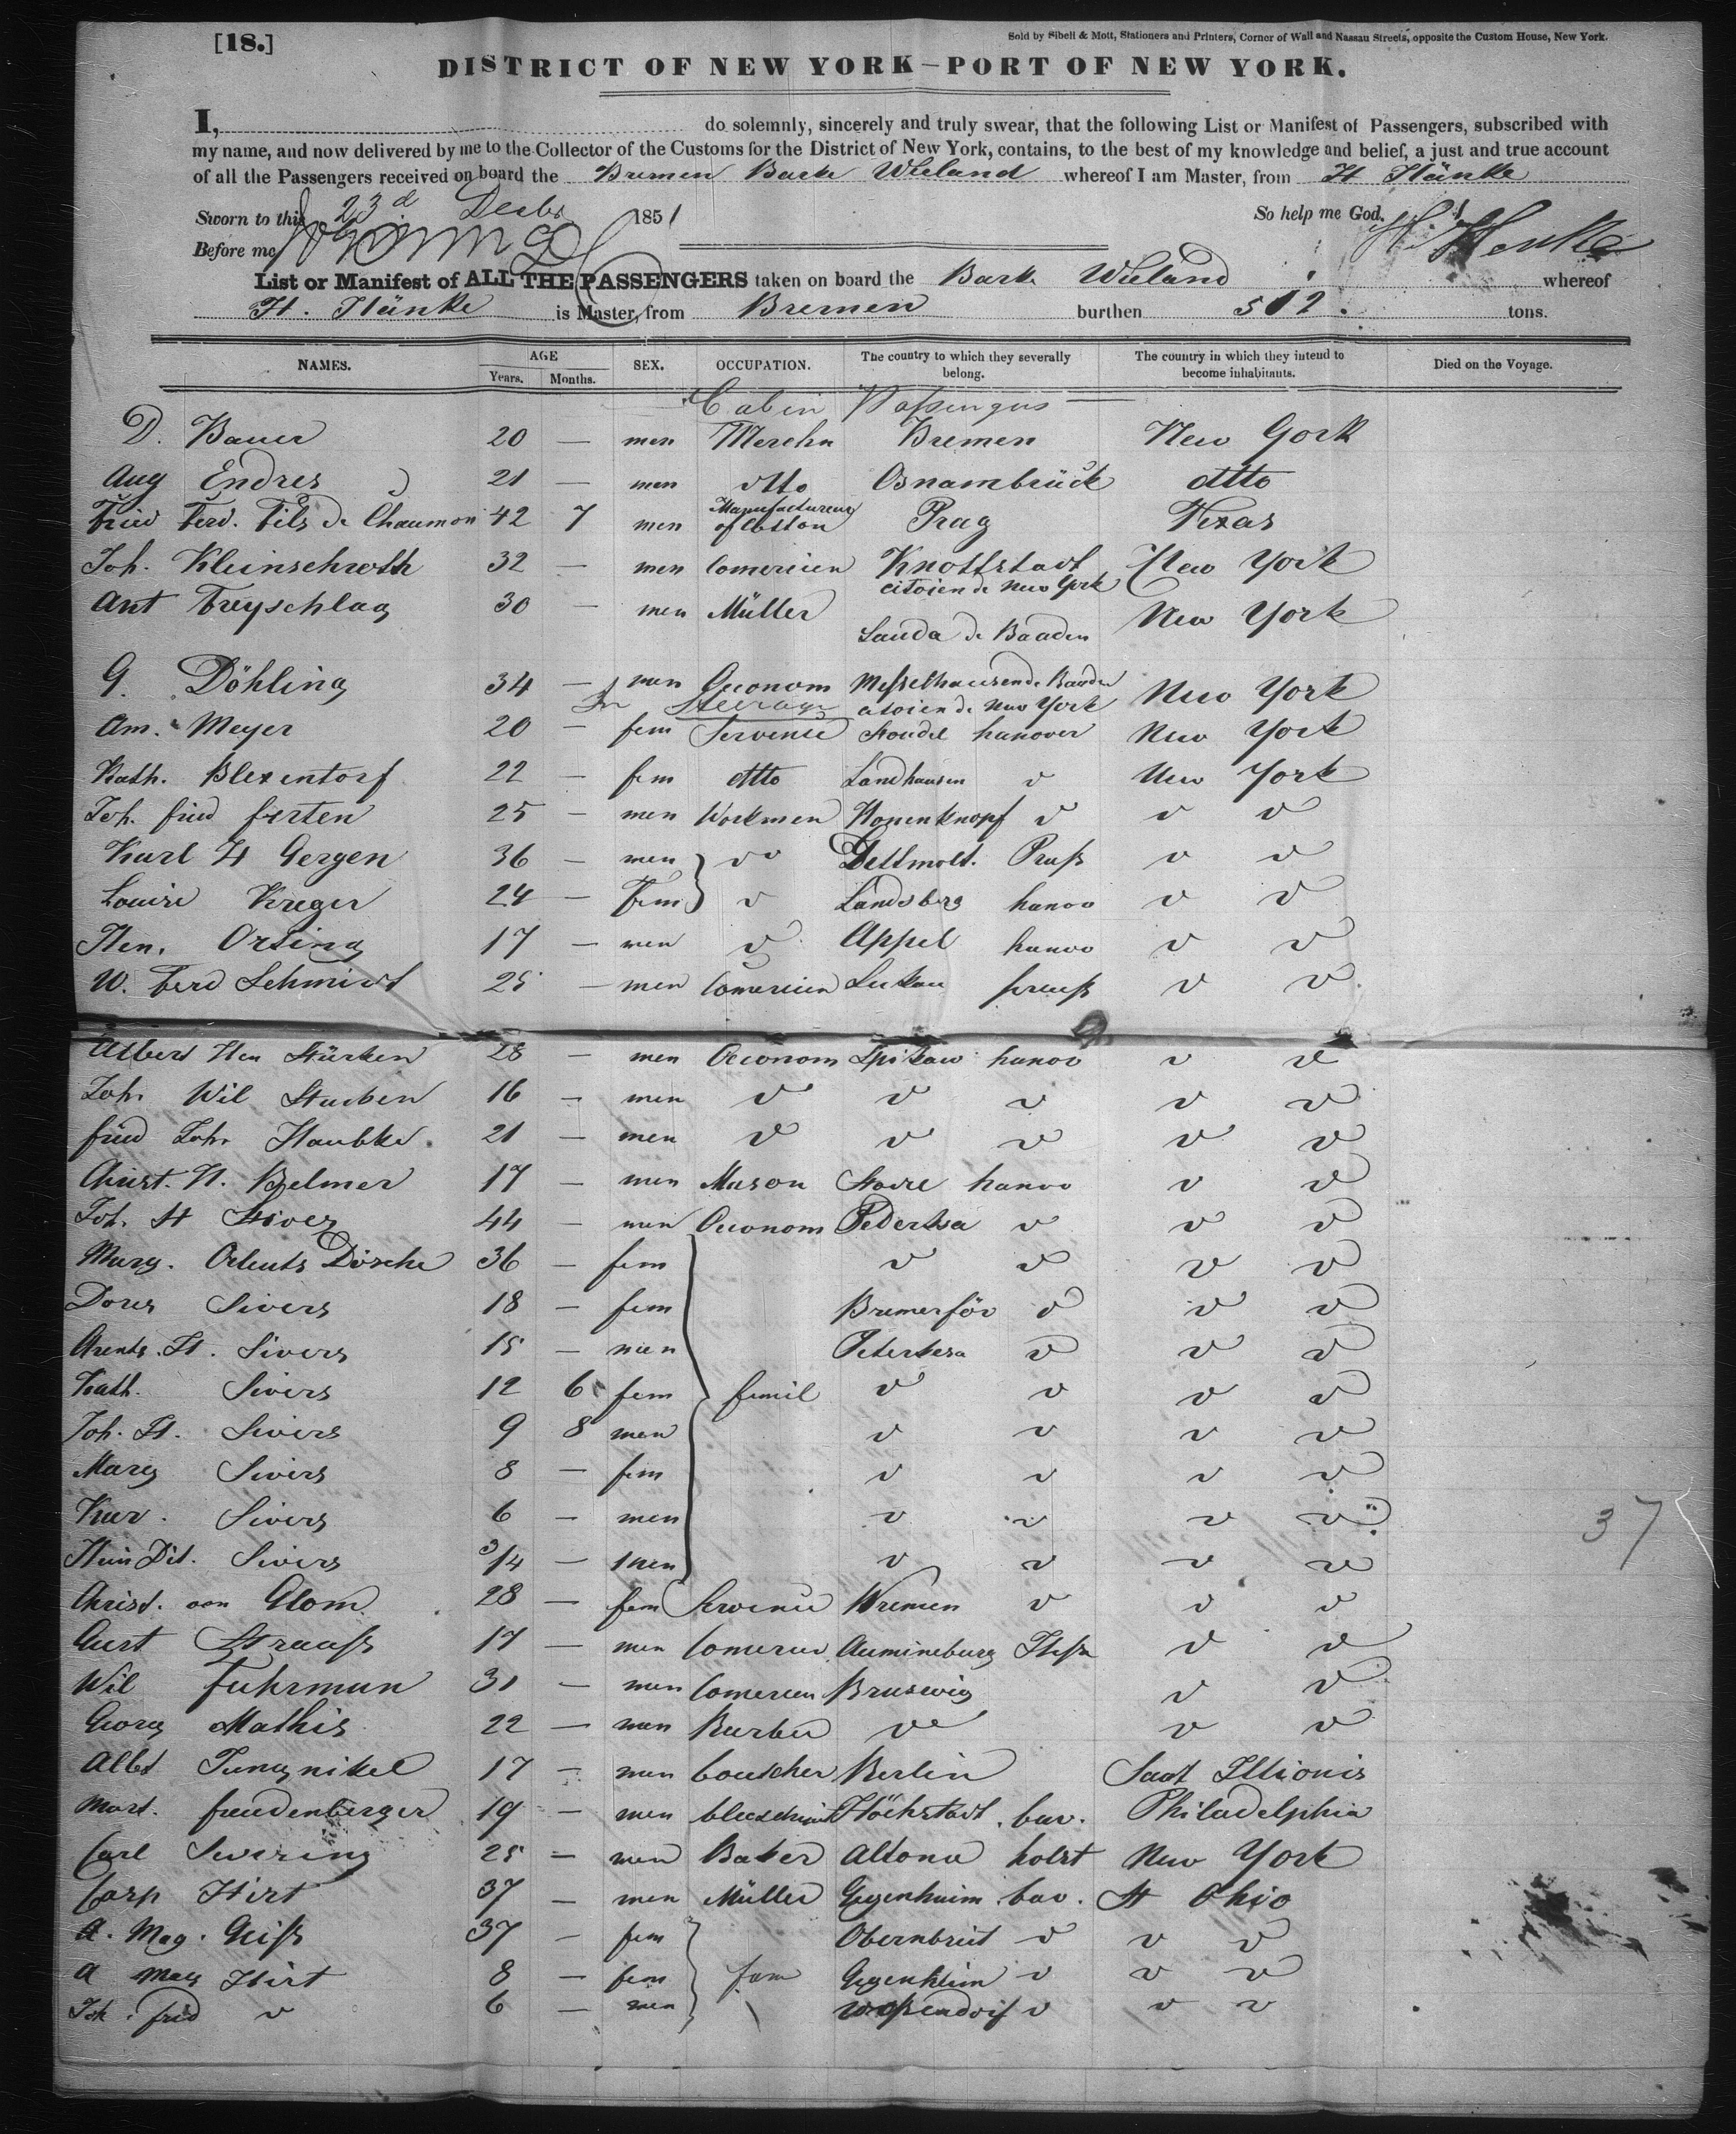 [18.]
Sold by Sibell & Mott, Stationers and Printers, Corner of Wall and Nassau Streets, opposite the Custom House, New York.
DISTRICT OF NEW YORK—PORT OF NEW YORK.
I, do solemnly, sincerely and truly swear, that the following List or Manifest of Passengers, subscribed with
my name, and now delivered by me to the Collector of the Customs for the District of New York, contains, to the best of my knowledge and belief, a just and true account
of all the Passengers received on board the Bremen Barke Wieland whereof I am Master, from H Hänke
Sworn to this 23d Decbr 1851 So help me God.
Before me H. Henke
List or Manifest of ALL THE PASSENGERS taken on board the Bark Wieland whereof
H. Hänke is Master, from Bremen burthen 512. tons.
NAMES. AGE Years. Months. SEX. OCCUPATION. The country to which they severally belong. The country in which they intend to become inhabitants. Died on the Voyage.
Cabin Passengers
D. Bauer 20 — men Merchn Bremen New York
Aug Endres 21 — men dtto Osnambrück dtto
Fried Ferd. Fils de Chaumon 42 7 men Manufactureur of Cotton Prag Texas
Joh. Kleinschroth 32 — men Comercien Knottstadt citoien de New York New York
Ant Freyschlag 30 — men Müller Lauda de Baaden New York
G. Döhling 34 — men Oeconom Messelhausen de Baaden citoien de New York New York
In Steerage
Am. Meyer 20 — fem Servente hanover New York
Kath. Blexentorf 22 — fem dtto Landhausen v New York
Joh. fried ferten 25 — men Workmen Honenknopf v v v
Karl H Gergen 36 — men v Dettmolt. Pruß v v
Louise Kreger 24 — Fem v Landsberg hanov v v
Hen. Orting 17 — men v Appel hanov v v
W. Ferd Schmidt 25 — men Comercien Luckau preuß v v
Albert Hen Stürken 28 — men Oeconom Spikaw hanov v v
Joh. Wil Stueben 16 — men v v v v v
fried Joh. Haubke. 21 — men v v v v v
Christ. H. Belmer 17 — men Mason hanov v v
Joh. H Sivers 44 — men Oeconom Pederksa v v v
Marg. Döscke 36 — fem v v v v
Dores Sivers 18 — fem Bremerför v v v
Arents. H. Sivers 15 — men Pederksa v v v
Kath. Sivers 12 6 fem femil v v v v
Joh. H. Sivers 9 8 men v v v v
Marg Sivers 8 — fem v v v v
Sivers 6 — men v v v v
Hein Dit. Sivers 3/4 — men v v v v
Christ. von Glom 28 — fem Servente Wremen v v v
Curt Strauß 17 — men Comercien v v
Wil Fuhrmun 31 — men Comercien Bruswig v v
Georg Mathis 22 — men Barber v v v
Albt Jungnikel 17 — men Boutcher Berlin Illionis
Mart. freudenberger 19 — men Höchstadt. bav. Philadelphia
Carl Severing 25 — men Baker Altona holst New York
Casp Hirt 37 — men Müller Gegenheim. bav. St Ohio
A. Mag. Geiß 37 — fem Obernbreit v v v
A Marg Hirt 8 — fem fam Gegenheim v v v
Joh. frid v 6 — men v v v
37